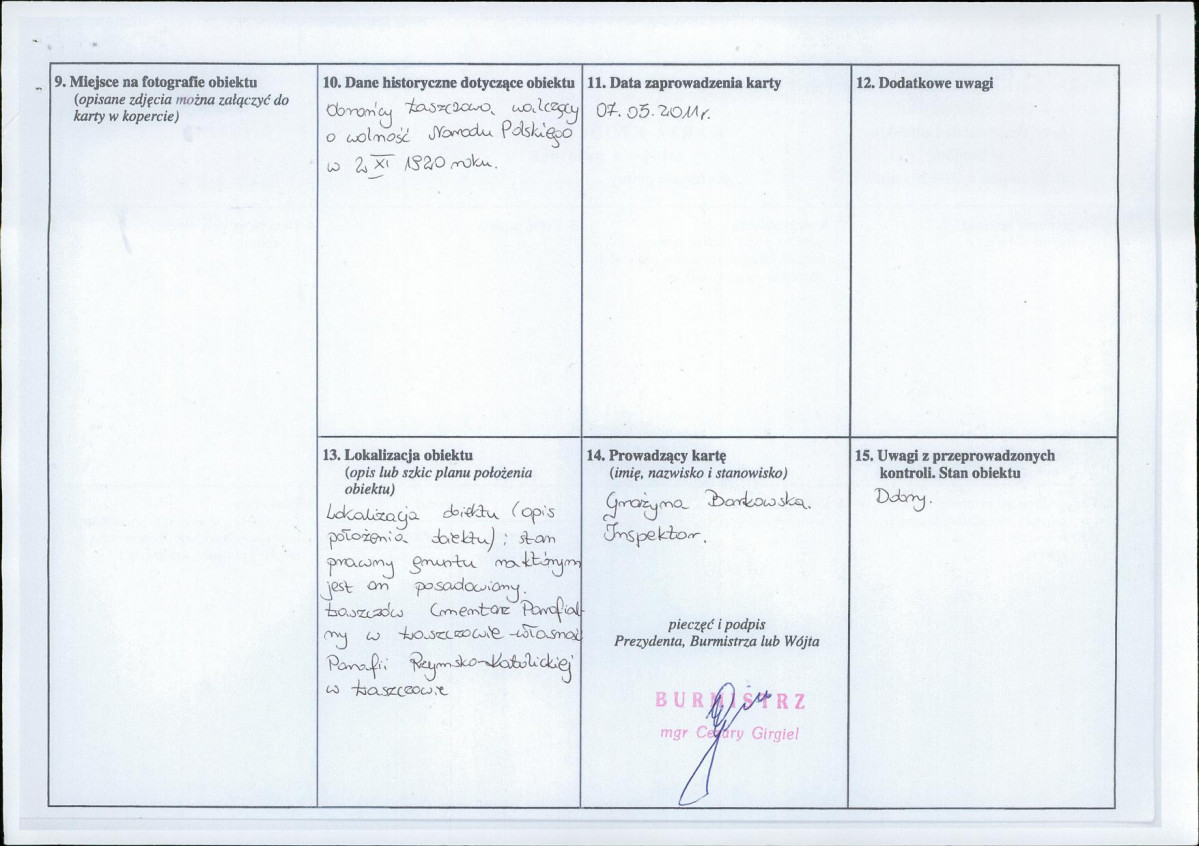 9. Miejsce na fotografie obiektu
(opisane zdjęcia można załączyć do
karty w kopercie)
10. Dane historyczne dotyczące obiektu
Obrońcy Łaszczowa, walczący
o wolność Narodu Polskiego
w 2 XI 1920 roku.
11. Data zaprowadzenia karty
07.05.2011r.
12. Dodatkowe uwagi
13. Lokalizacja obiektu
(opis lub szkic planu położenia
obiektu)
Lokalizacja obiektu (opis
położenia obiektu); stan
prawny gruntu na którym
jest on posadowiony.
Łaszczów Cmentarz Parafial-
ny w Łaszczowie - własność
Parafii Rzymsko-Katolickiej
w Łaszczowie
14. Prowadzący kartę
(imię, nazwisko i stanowisko)
Grażyna Barkowska.
Inspektor.
pieczęć i podpis
Prezydenta, Burmistrza lub Wójta
BURMISTRZ
mgr Cezary Girgiel
15. Uwagi z przeprowadzonych
kontroli. Stan obiektu
Dobry.